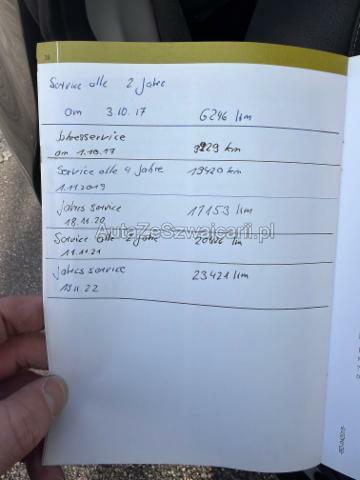 Service alle 2 Jahre
am 3.10.17 6246 km
Jahresservice
am 1.10.17 9229 km
Service alle 4 Jahre 13420 km
1.11.2019
Jahres service 17153 km
18.11.20
AutaZeSzwajcarii.pl
Service alle 2 Jahre km
11.11.21
Jahres service 23421 km
11.22